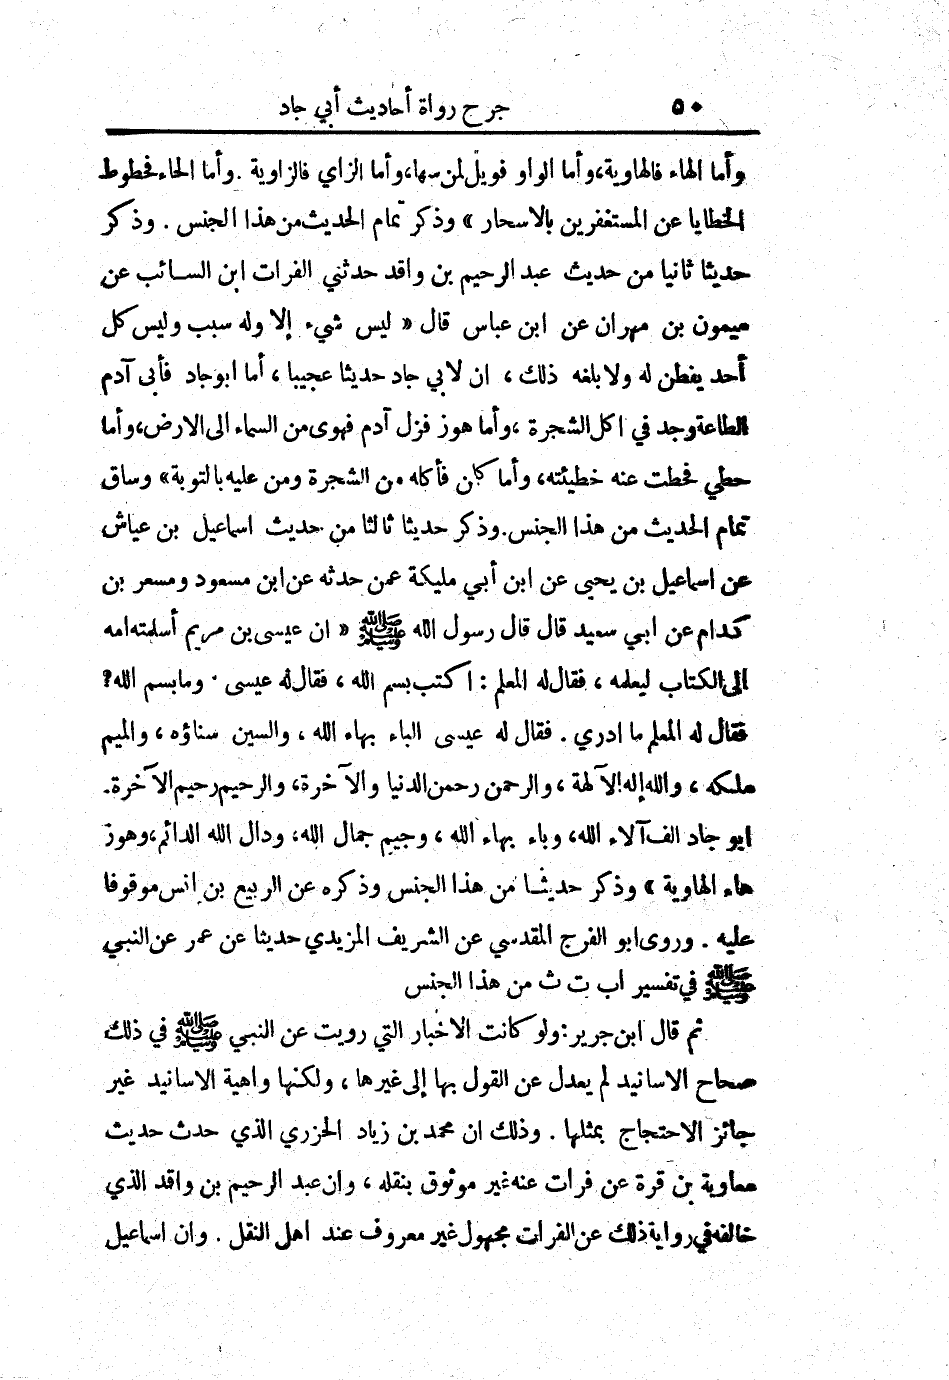 ٥٠ جرح رواة أحاديث أبي جاد
وأما الهاء فالهاوية،وأما الواو فويل لمن سها،وأما الزاي فالزاوية .وأما الحاء فحطوط
الخطايا عن المستغفرين بالاسحار » وذكر تمام الحديث من هذا الجنس . وذكر
حديثا ثانيا من حديث عبد الرحيم بن واقد حدثني الفرات ابن السائب عن
ميمون بن مهران عن ابن عباس قال « ليس شيء إلا وله سبب وليس كل
أحد يفطن له ولا بلغه ذلك ، ان لابي جاد حديثا عجيبا ، أما ابو جاد فأبى آدم
الطاعة وجد في اكل الشجرة ،وأما هوز فزل آدم فهوى من السماء الى الارض،وأما
حطي فحطت عنه خطيئته، وأما كلن فأكله من الشجرة ومن عليه بالتوبة» وساق
تمام الحديث من هذا الجنس.وذكر حديثا ثالثا من حديث اسماعيل بن عياش
عن اسماعيل بن يحيى عن ابن أبي مليكة عمن حدثه عن ابن مسعود ومسعر بن
كدام عن ابي سعيد قال قال رسول الله ﷺ « ان عيسى بن مريم أسلمته امه
الى الكتاب ليعلمه ، فقال له المعلم : اكتب بسم الله ، فقال له عيسى ٠ وما بسم الله؟
فقال له المعلم ما ادري . فقال له عيسى الباء بهاء الله ، والسين سناؤه ، والميم
ملكه ، والله إله الآلهة ، والرحمن رحمن الدنيا والآخرة، والرحيم رحيم الآخرة.
ابو جاد الف آلاء الله، وباء بهاء الله ، وجيم جمال الله، ودال الله الدائم،وهوز
هاء الهاوية » وذكر حديثا من هذا الجنس وذكره عن الربيع بن انس موقوفا
عليه . وروى ابو الفرج المقدسي عن الشريف المزيدي حديثا عن عمر عن النبي
ﷺ في تفسير اب ت ث من هذا الجنس
ثم قال ابن جرير :ولو كانت الاخبار التي رويت عن النبي ﷺ في ذلك
صحاح الاسانيد لم يعدل عن القول بها إلى غيرها ، ولكنها واهية الاسانيد غير
جائز الاحتجاج بمثلها . وذلك ان محمد بن زياد الجزري الذي حدث حديث
معاوية بن قرة عن فرات عنه غير موثوق بنقله ، وان عبد الرحيم بن واقد الذي
خالفه في رواية ذلك عن الفرات مجهول غير معروف عند اهل النقل . وان اسماعيل